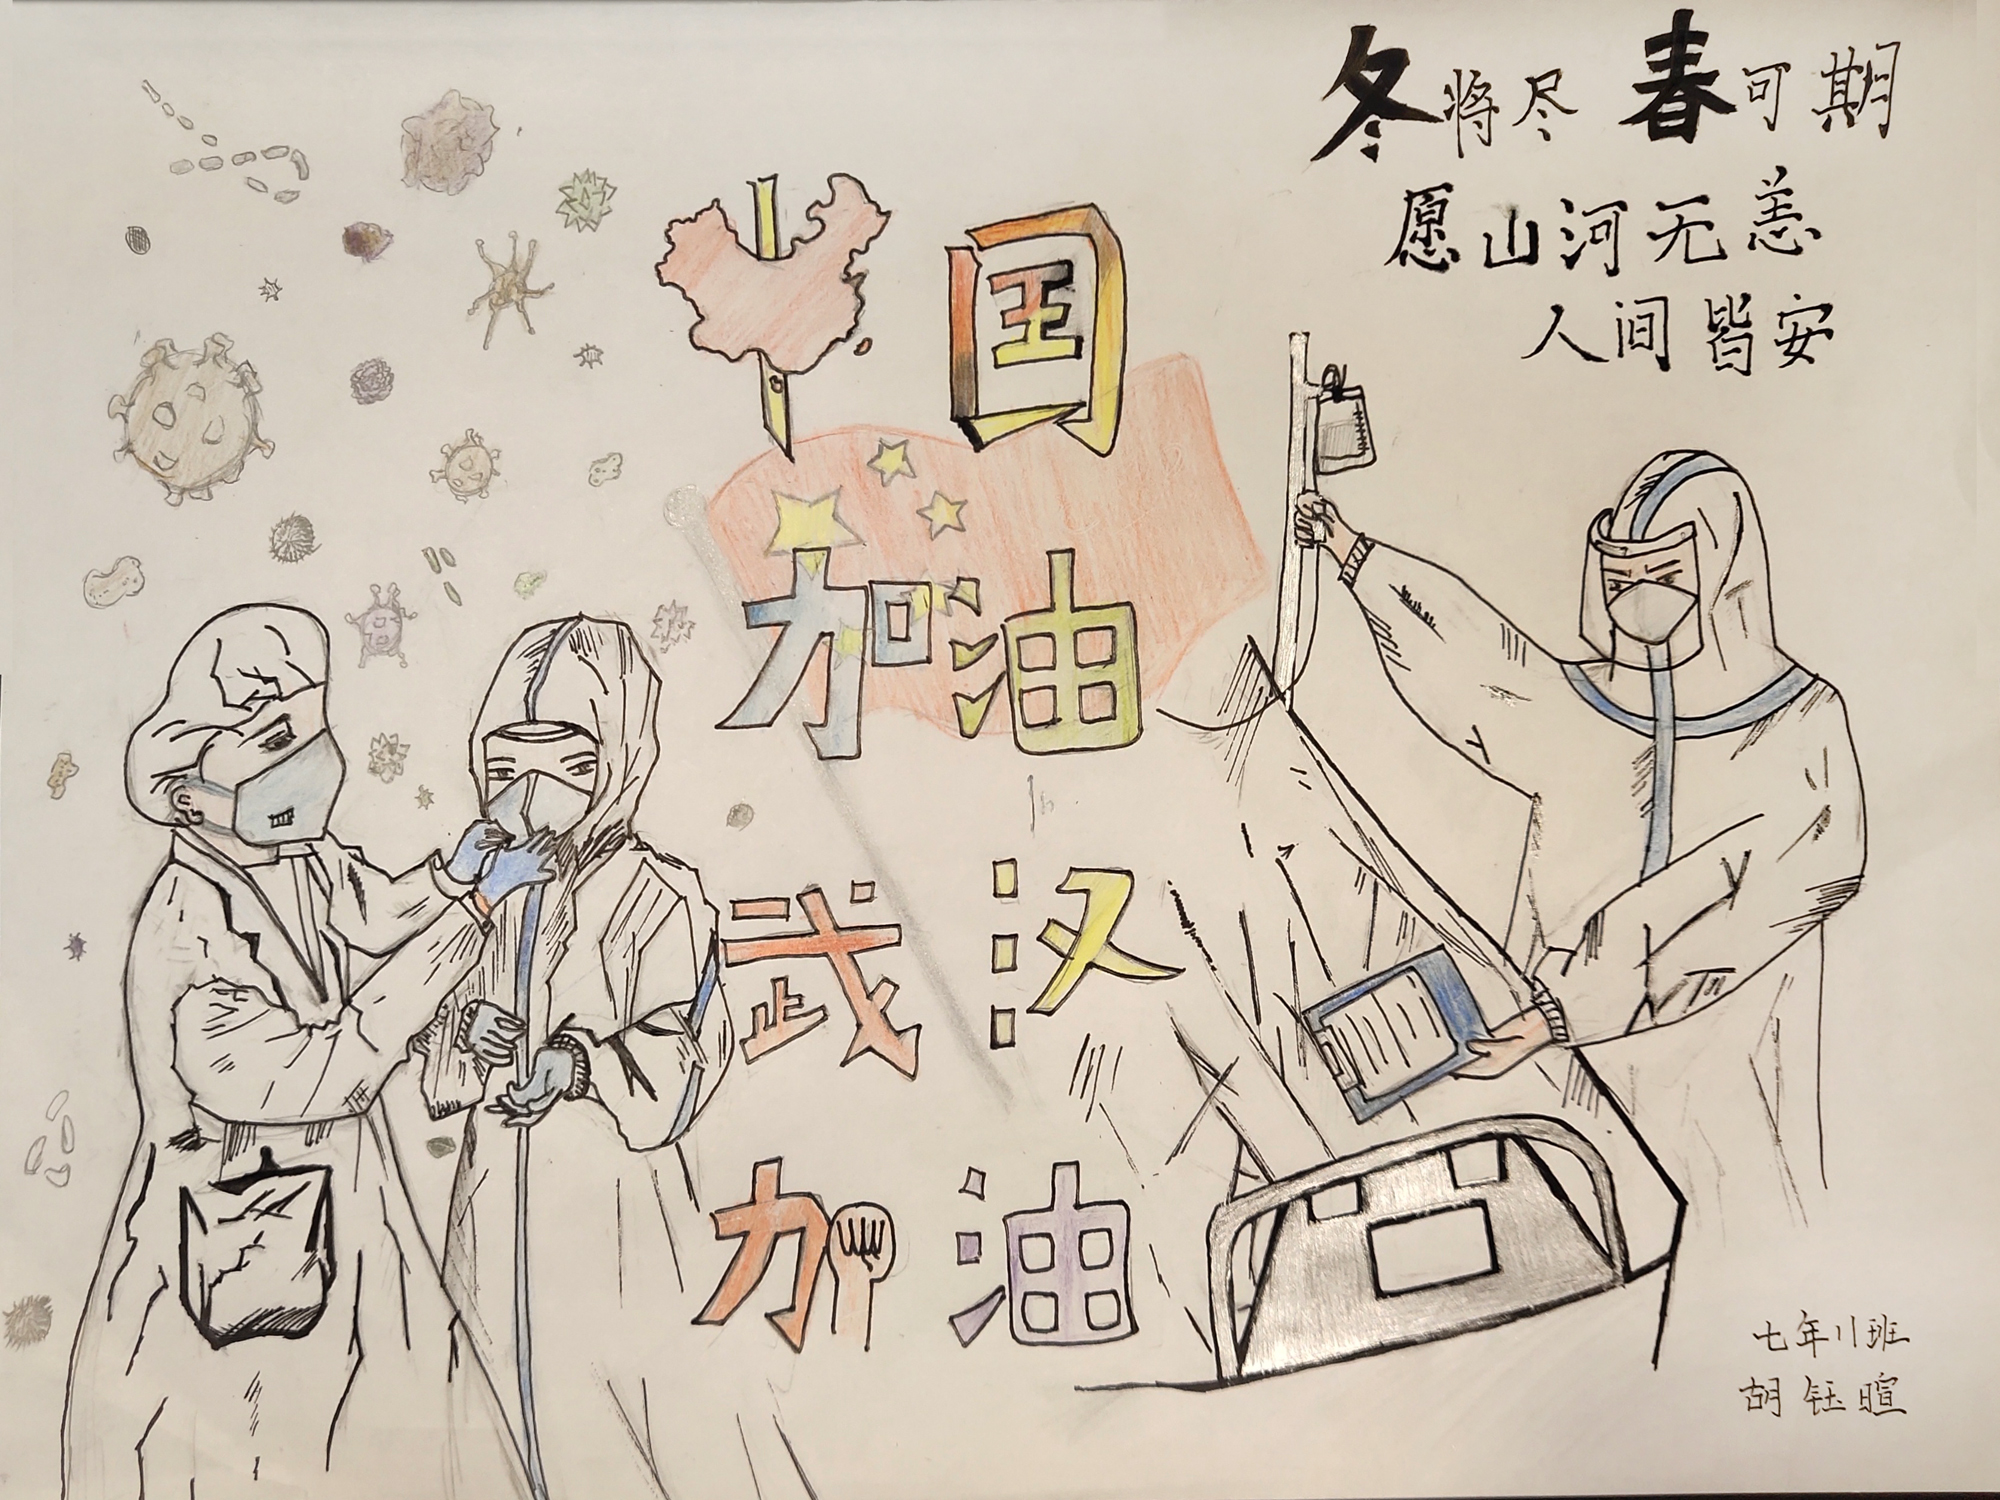 冬将尽 春可期
愿山河无恙
人间皆安
中国
加油
武汉
加油
七年11班
胡钰暄